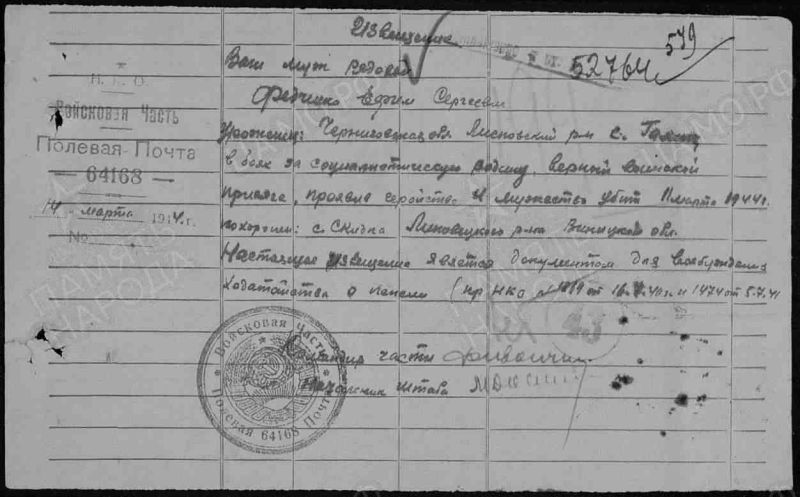 Извещение
549
52764
Н.К.О.
Войсковая Часть
Полевая Почта
— 64168 —
14 марта 1944 г.
No
Ваш муж рядовой
Федченко Ефим Сергеевич
Уроженец: Черниговская обл. р-н с.
в боях за социалистическую родину, верный воинской
присяге, проявив геройство и мужество убит марта 1944г.
похоронен: с. Скидка Липовецкого р-на Виницкой обл.
Настоящее извещение является документом для возбуждения
ходатайства о пенсии (пр НКО от и 1474 от 5.7.41
Командир части
Начальник штаба
Войсковая Часть
Полевая Почта
64168
ПАМЯТЬ НАРОДА
ЦАМО.РФ